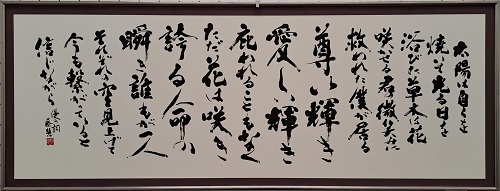 太陽は自らを
焼いて光る日を
浴びた草木は花
咲かせ君微笑んだ
救われた僕が居る
尊い輝き
愛しい輝き
庇われることもなく
ただ花は咲き
誇る命の
瞬き誰もが一人
それぞれの空見上げて
今も繋がっていると
信じながら